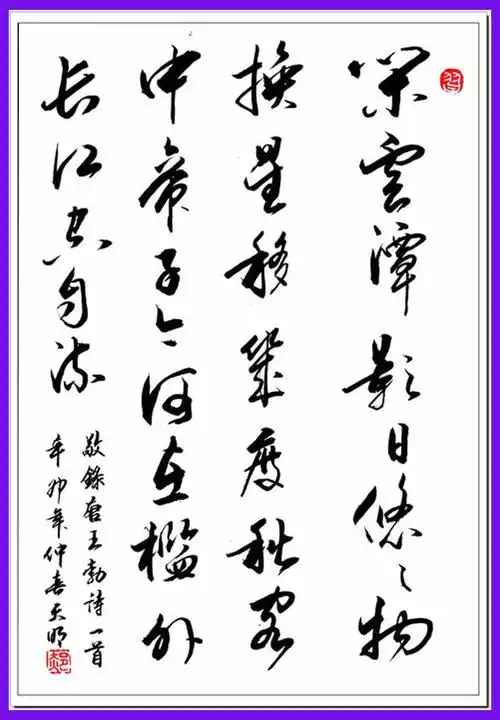 闲雲潭影日悠悠物
換星移幾度秋閣
中帝子今何在檻外
长江空自流
敬錄唐王勃詩一首
辛卯年仲喜天明